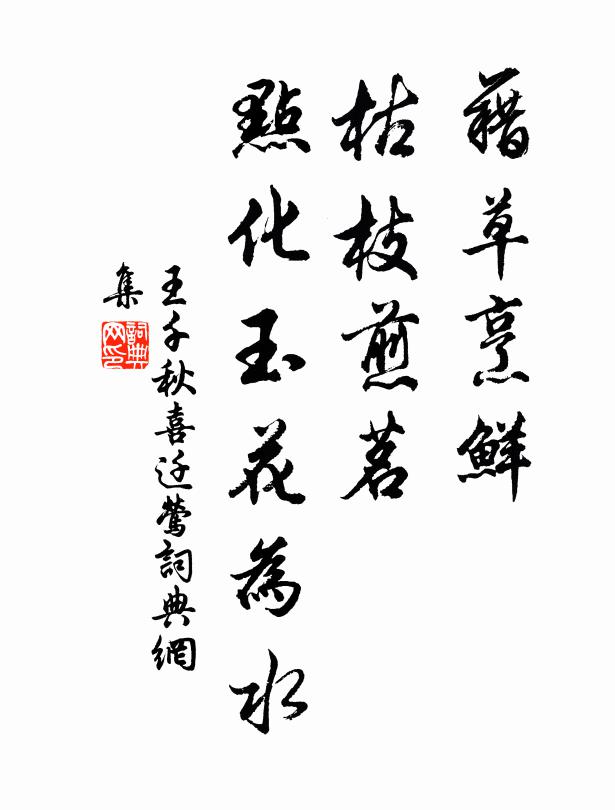 藉草烹鮮
枯枝煎茗
點化玉花為水
王千秋喜迁鶯詞典網
集
詞典
网印